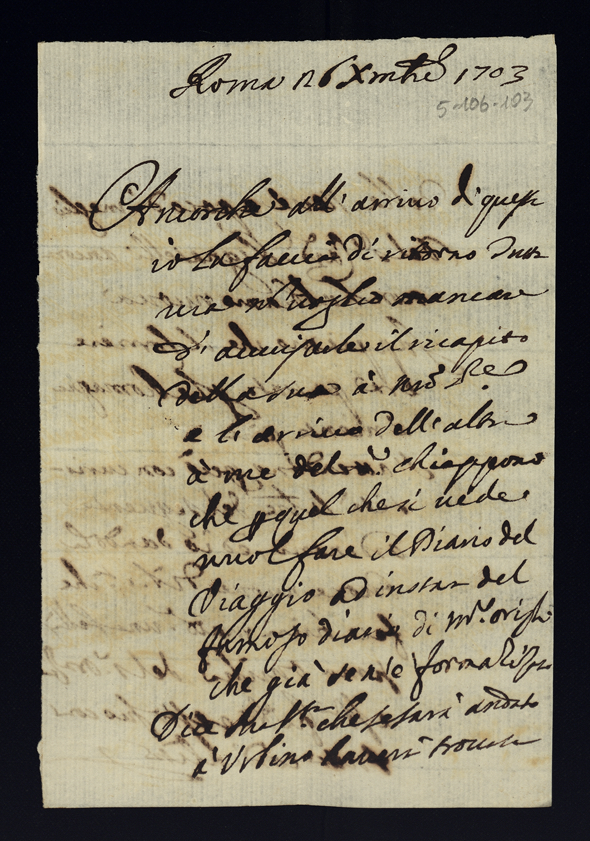 Roma 26 Xmbre 1703
5-106-103
Ancorche all' arrivo di quest
io la faccia di ritorno
non voglio mancare
d' accusarle il ricapito
della sua à
e l' arrivo dell' altra
à me del chiappone
che quel che si vede
vuol fare il Diario del
Viaggio ad instar del
famoso diario di
che già se n'è formalizato
Dice che se sarà andato
à Urbino haverà trovato